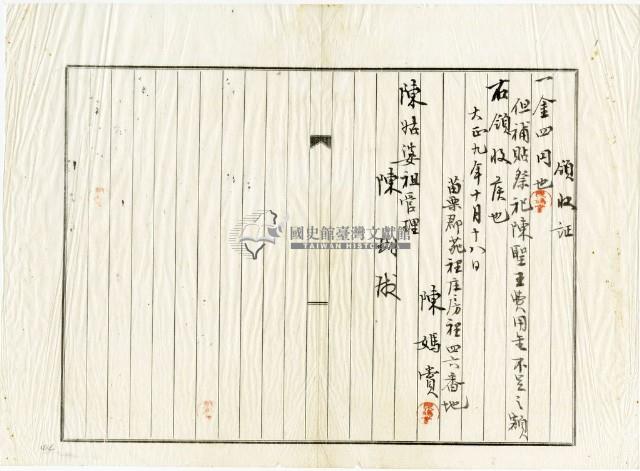 領收証
一金四円也
但補貼祭祀陳聖王費用金不足之額
右領收候也
大正九年十月十八日
苗栗郡苑裡庄房裡四六番地
陳媽賞
陳姑婆祖管理
陳
國史館臺灣文獻館
TAIWAN HISTORICA